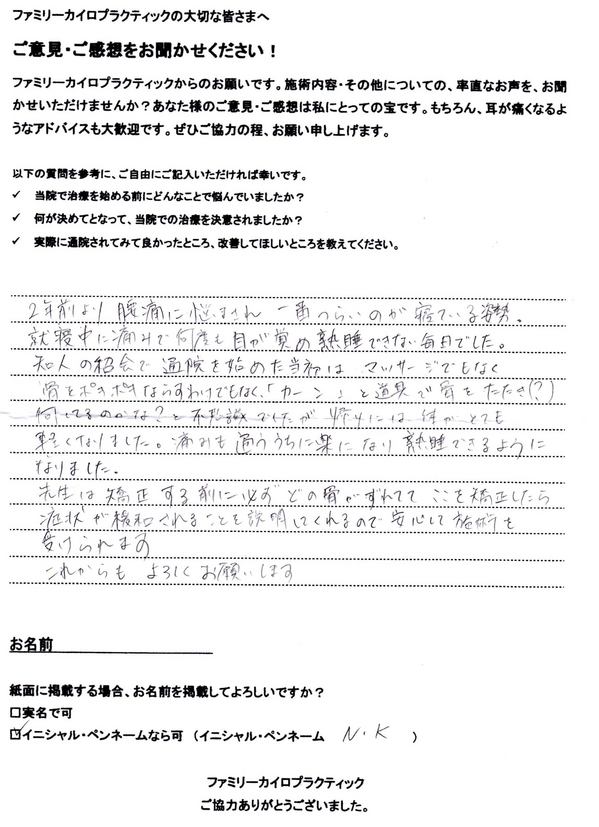 ファミリーカイロプラクティックの大切な皆さまへ
ご意見・ご感想をお聞かせください！
ファミリーカイロプラクティックからのお願いです。施術内容・その他についての、率直なお声を、お聞
かせいただけませんか？あなた様のご意見・ご感想は私にとっての宝です。もちろん、耳が痛くなるよ
うなアドバイスも大歓迎です。ぜひご協力の程、お願い申し上げます。
以下の質問を参考に、ご自由にご記入いただければ幸いです。
✓ 当院で治療を始める前にどんなことで悩んでいましたか？
✓ 何が決めてとなって、当院での治療を決意されましたか？
✓ 実際に通院されてみて良かったところ、改善してほしいところを教えてください。
2年前より腰痛に悩まされ 一番つらいのが寝ている姿勢。
就寝中に痛みで何度も目が覚め熟睡できない毎日でした。
知人の紹介で通院を始めた当初は マッサージでもなく
骨をポキポキならすわけでもなく、「カーン」と道具で骨をたたき(?)
何してるのかな？と不思議でしたが帰りには体がとても
軽くなりました。痛みも通ううちに楽になり熟睡できるように
なりました。
先生は矯正する前に必ずどの骨がずれてて ここを矯正したら
症状が緩和されることを説明してくれるので安心して施術を
受けられます
これからも よろしくお願いします
お名前
紙面に掲載する場合、お名前を掲載してよろしいですか？
□実名で可
☑イニシャル・ペンネームなら可 （イニシャル・ペンネーム N・K ）
ファミリーカイロプラクティック
ご協力ありがとうございました。